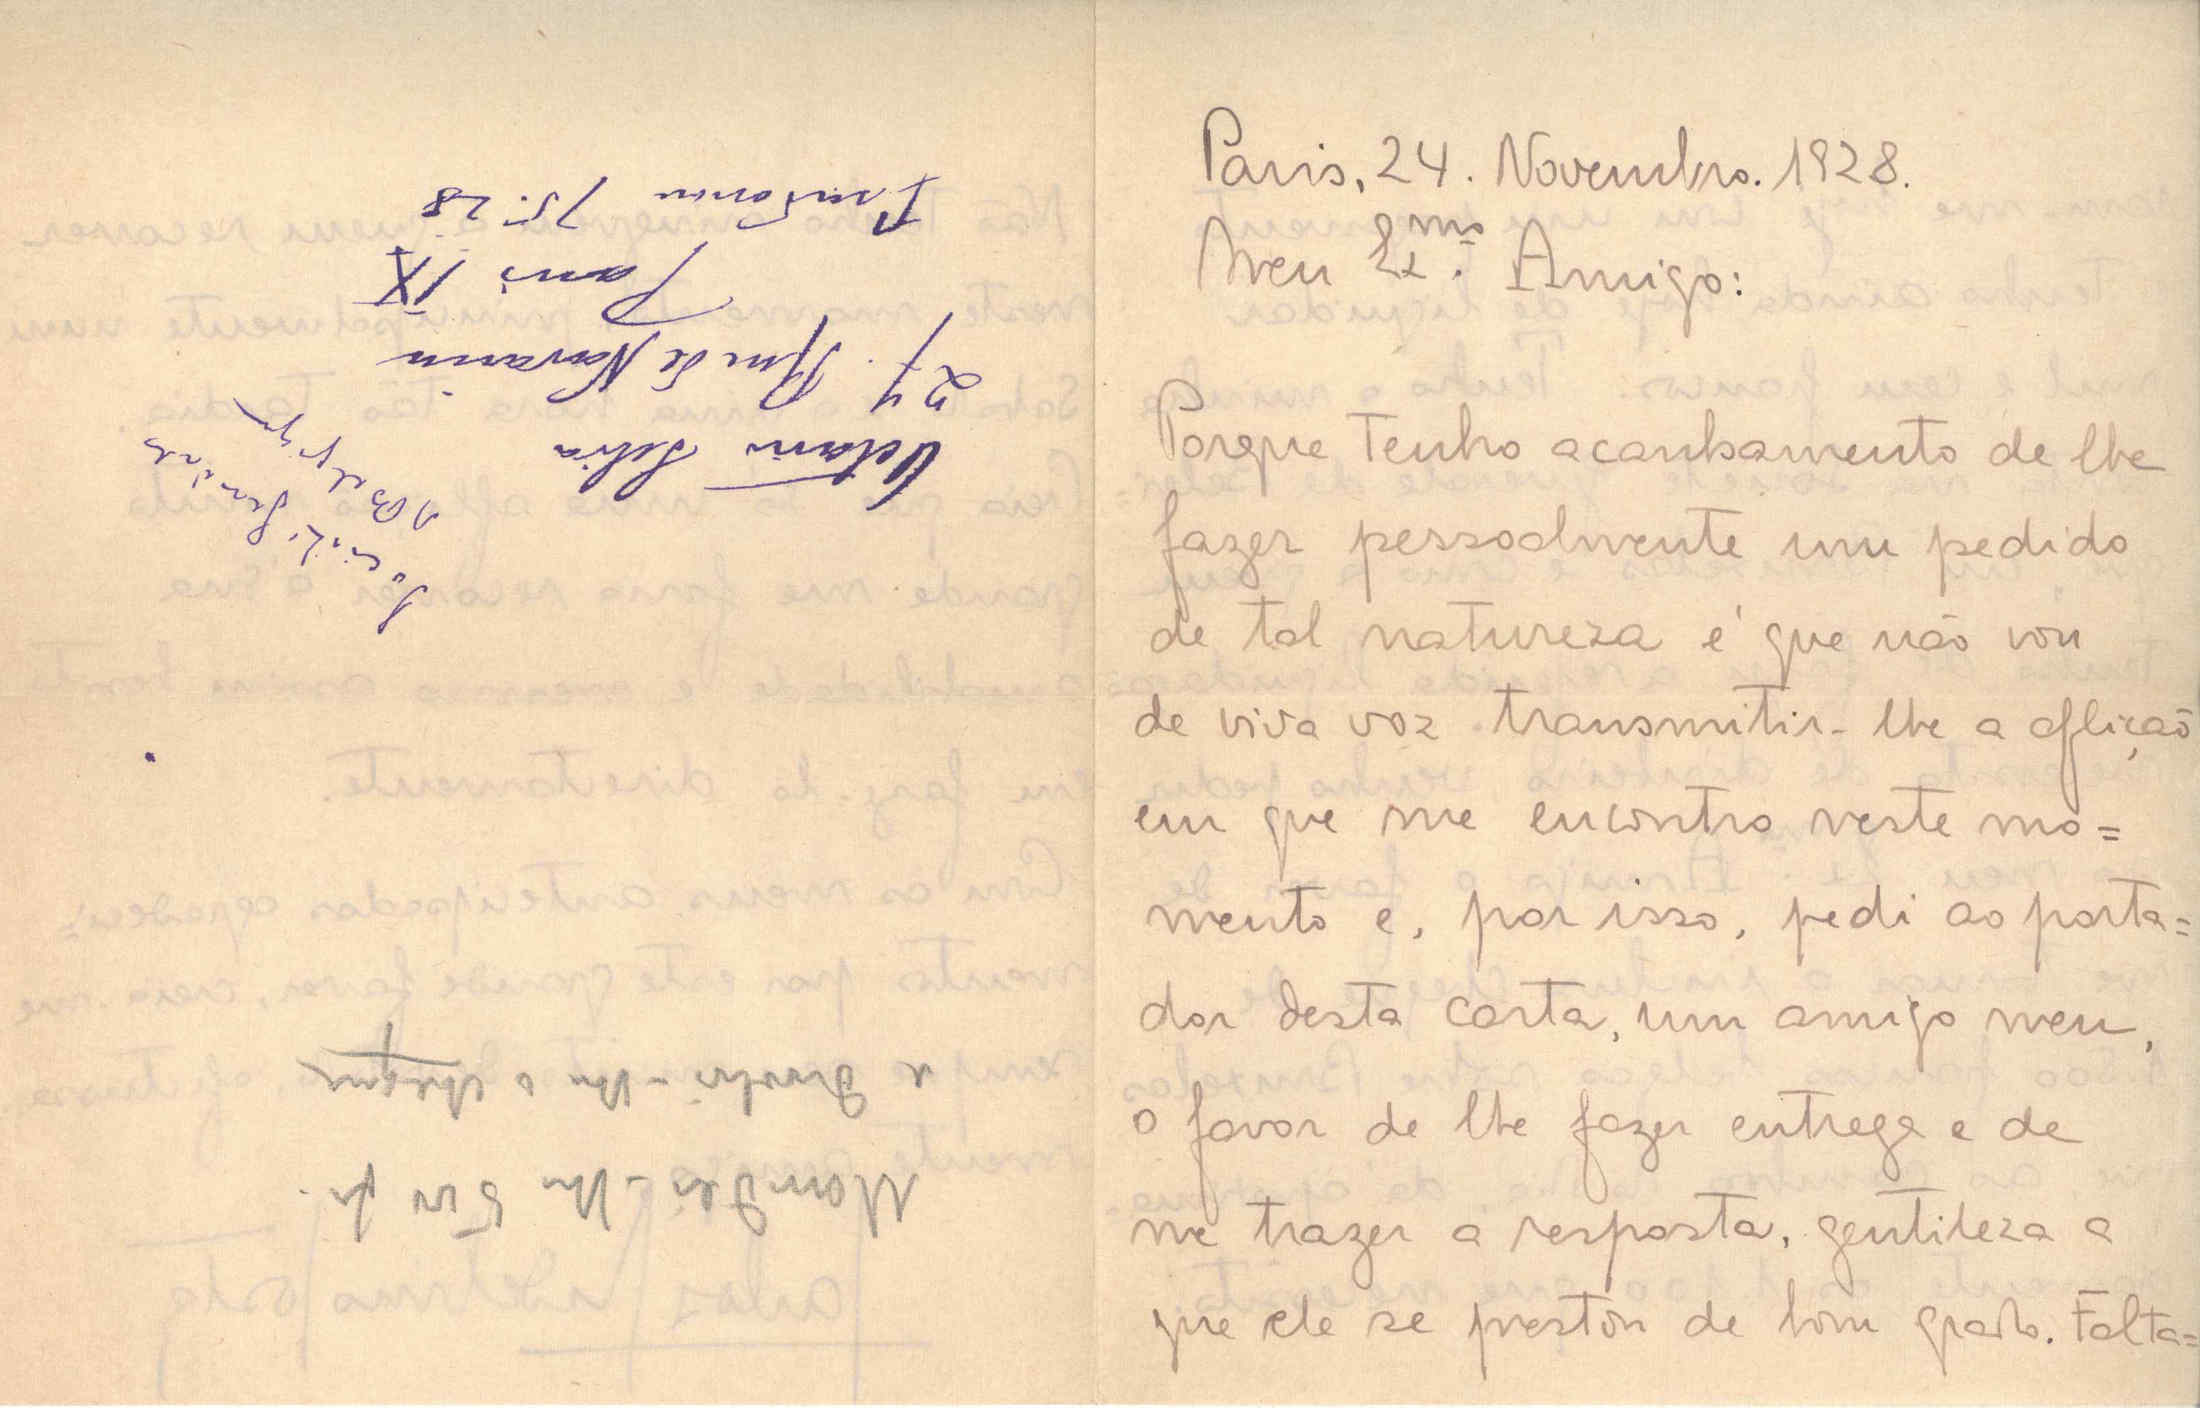 Paris, 24. Novembro. 1928.
Meu Ex.mo Amigo:
Porque tenho acanhamento de lhe
fazer pessoalmente um pedido
de tal natureza é que não vou
de viva voz transmitir-lhe a aflição
em que me encontro neste mo=
mento e, por isso, pedi ao porta=
dor desta carta, um amigo meu,
o favor de lhe fazer entrega e de
me trazer a resposta, gentileza a
que ele se prestou de bom grado. Falta=
Mandei-lhe 500 fr.
e devolvi-lhe o cheque
Octavio Silva
27. Rue de Navarin
Paris IX
Trudaine 75.28